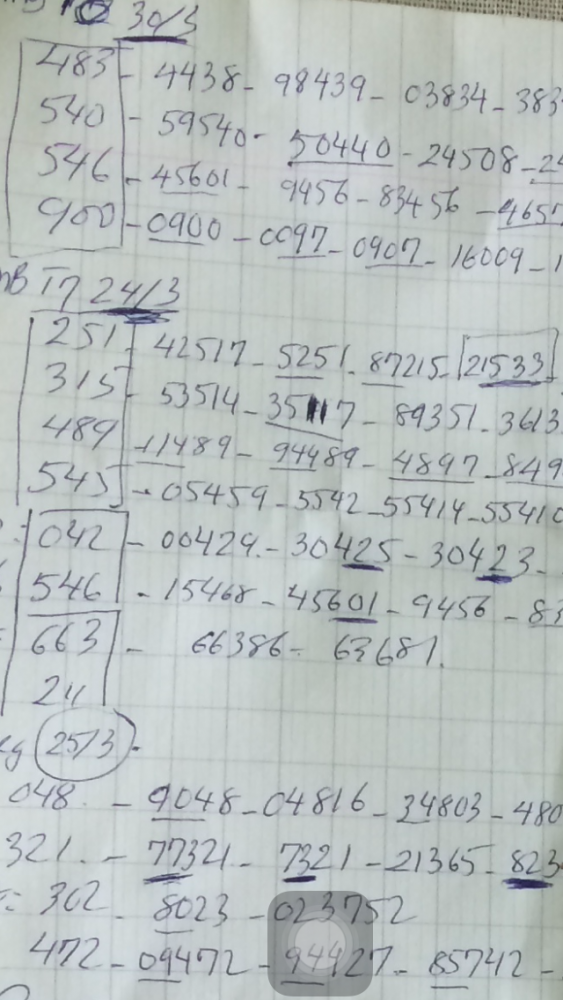 30/3
483 - 4438 - 98439 - 03834 - 383
540 - 59540 - 50440 - 24508 - 24
546 - 45601 - 9456 - 83456 - 4657
900 - 0900 - 0097 - 0907 - 16009 - 1
T7 24/3
251 - 42517 - 5251 - 87215 - 21533
315 - 53514 - 35117 - 89351 - 3613
489 - 11489 - 94489 - 4897 - 849
545 - 05459 - 5542 - 55414 - 55410
042 - 00429 - 30425 - 30423 -
546 - 15468 - 45601 - 9456 - 83
663 - 66386 - 63681.
24
25/3 -
048 - 9048 - 04816 - 34803 - 480
321. - 77321 - 7321 - 21365 - 823
302 - 8023 - 023752
472 - 09472 - 94427 - 85742 -